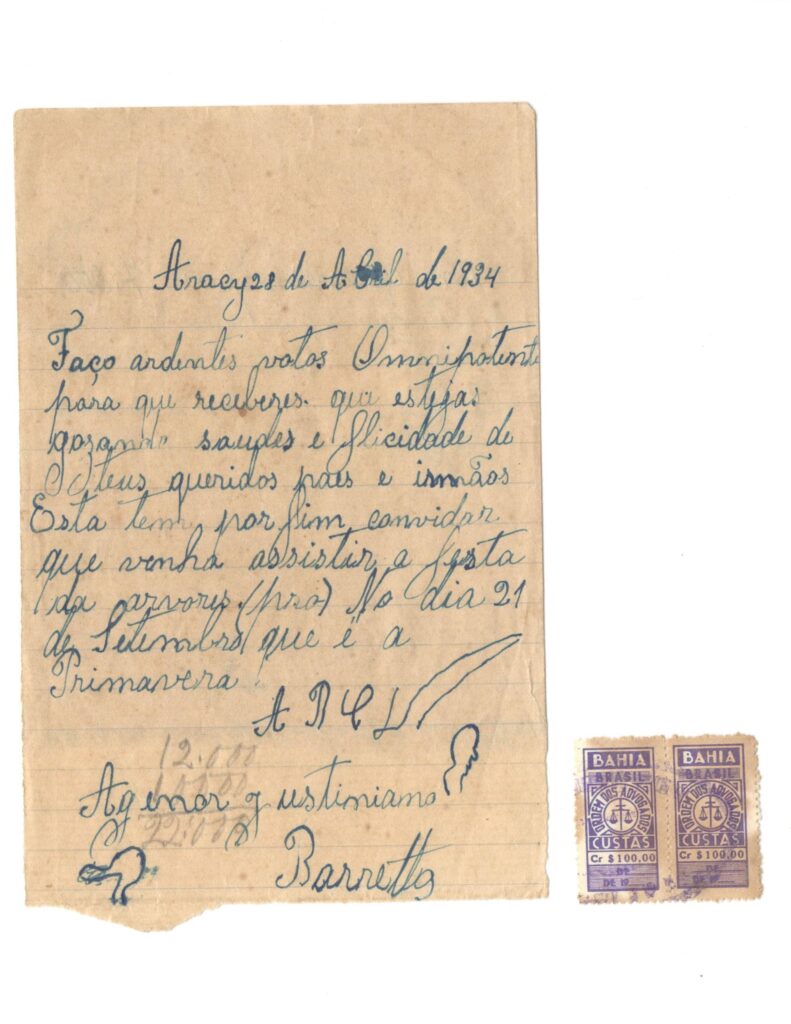 Aracy 28 de Abril de 1934
Faço ardentes votos Omnipotente
para que receberes. que estejas
gozando saudes e flicidade de
teus queridos paes e irmãos
Esta tem por fim convidar
que venha assistir a festa
da arvores (pra) No dia 21
de Setembro que é a
Primavera
A B C D
12.000
10000
22.000
Agenor Justiniano
Barretto
BAHIA
BRASIL
ORDEM DOS ADVOGADOS
CUSTAS
Cr $100,00
DE
DE 19
BAHIA
BRASIL
ORDEM DOS ADVOGADOS
CUSTAS
Cr $100,00
DE
DE 19